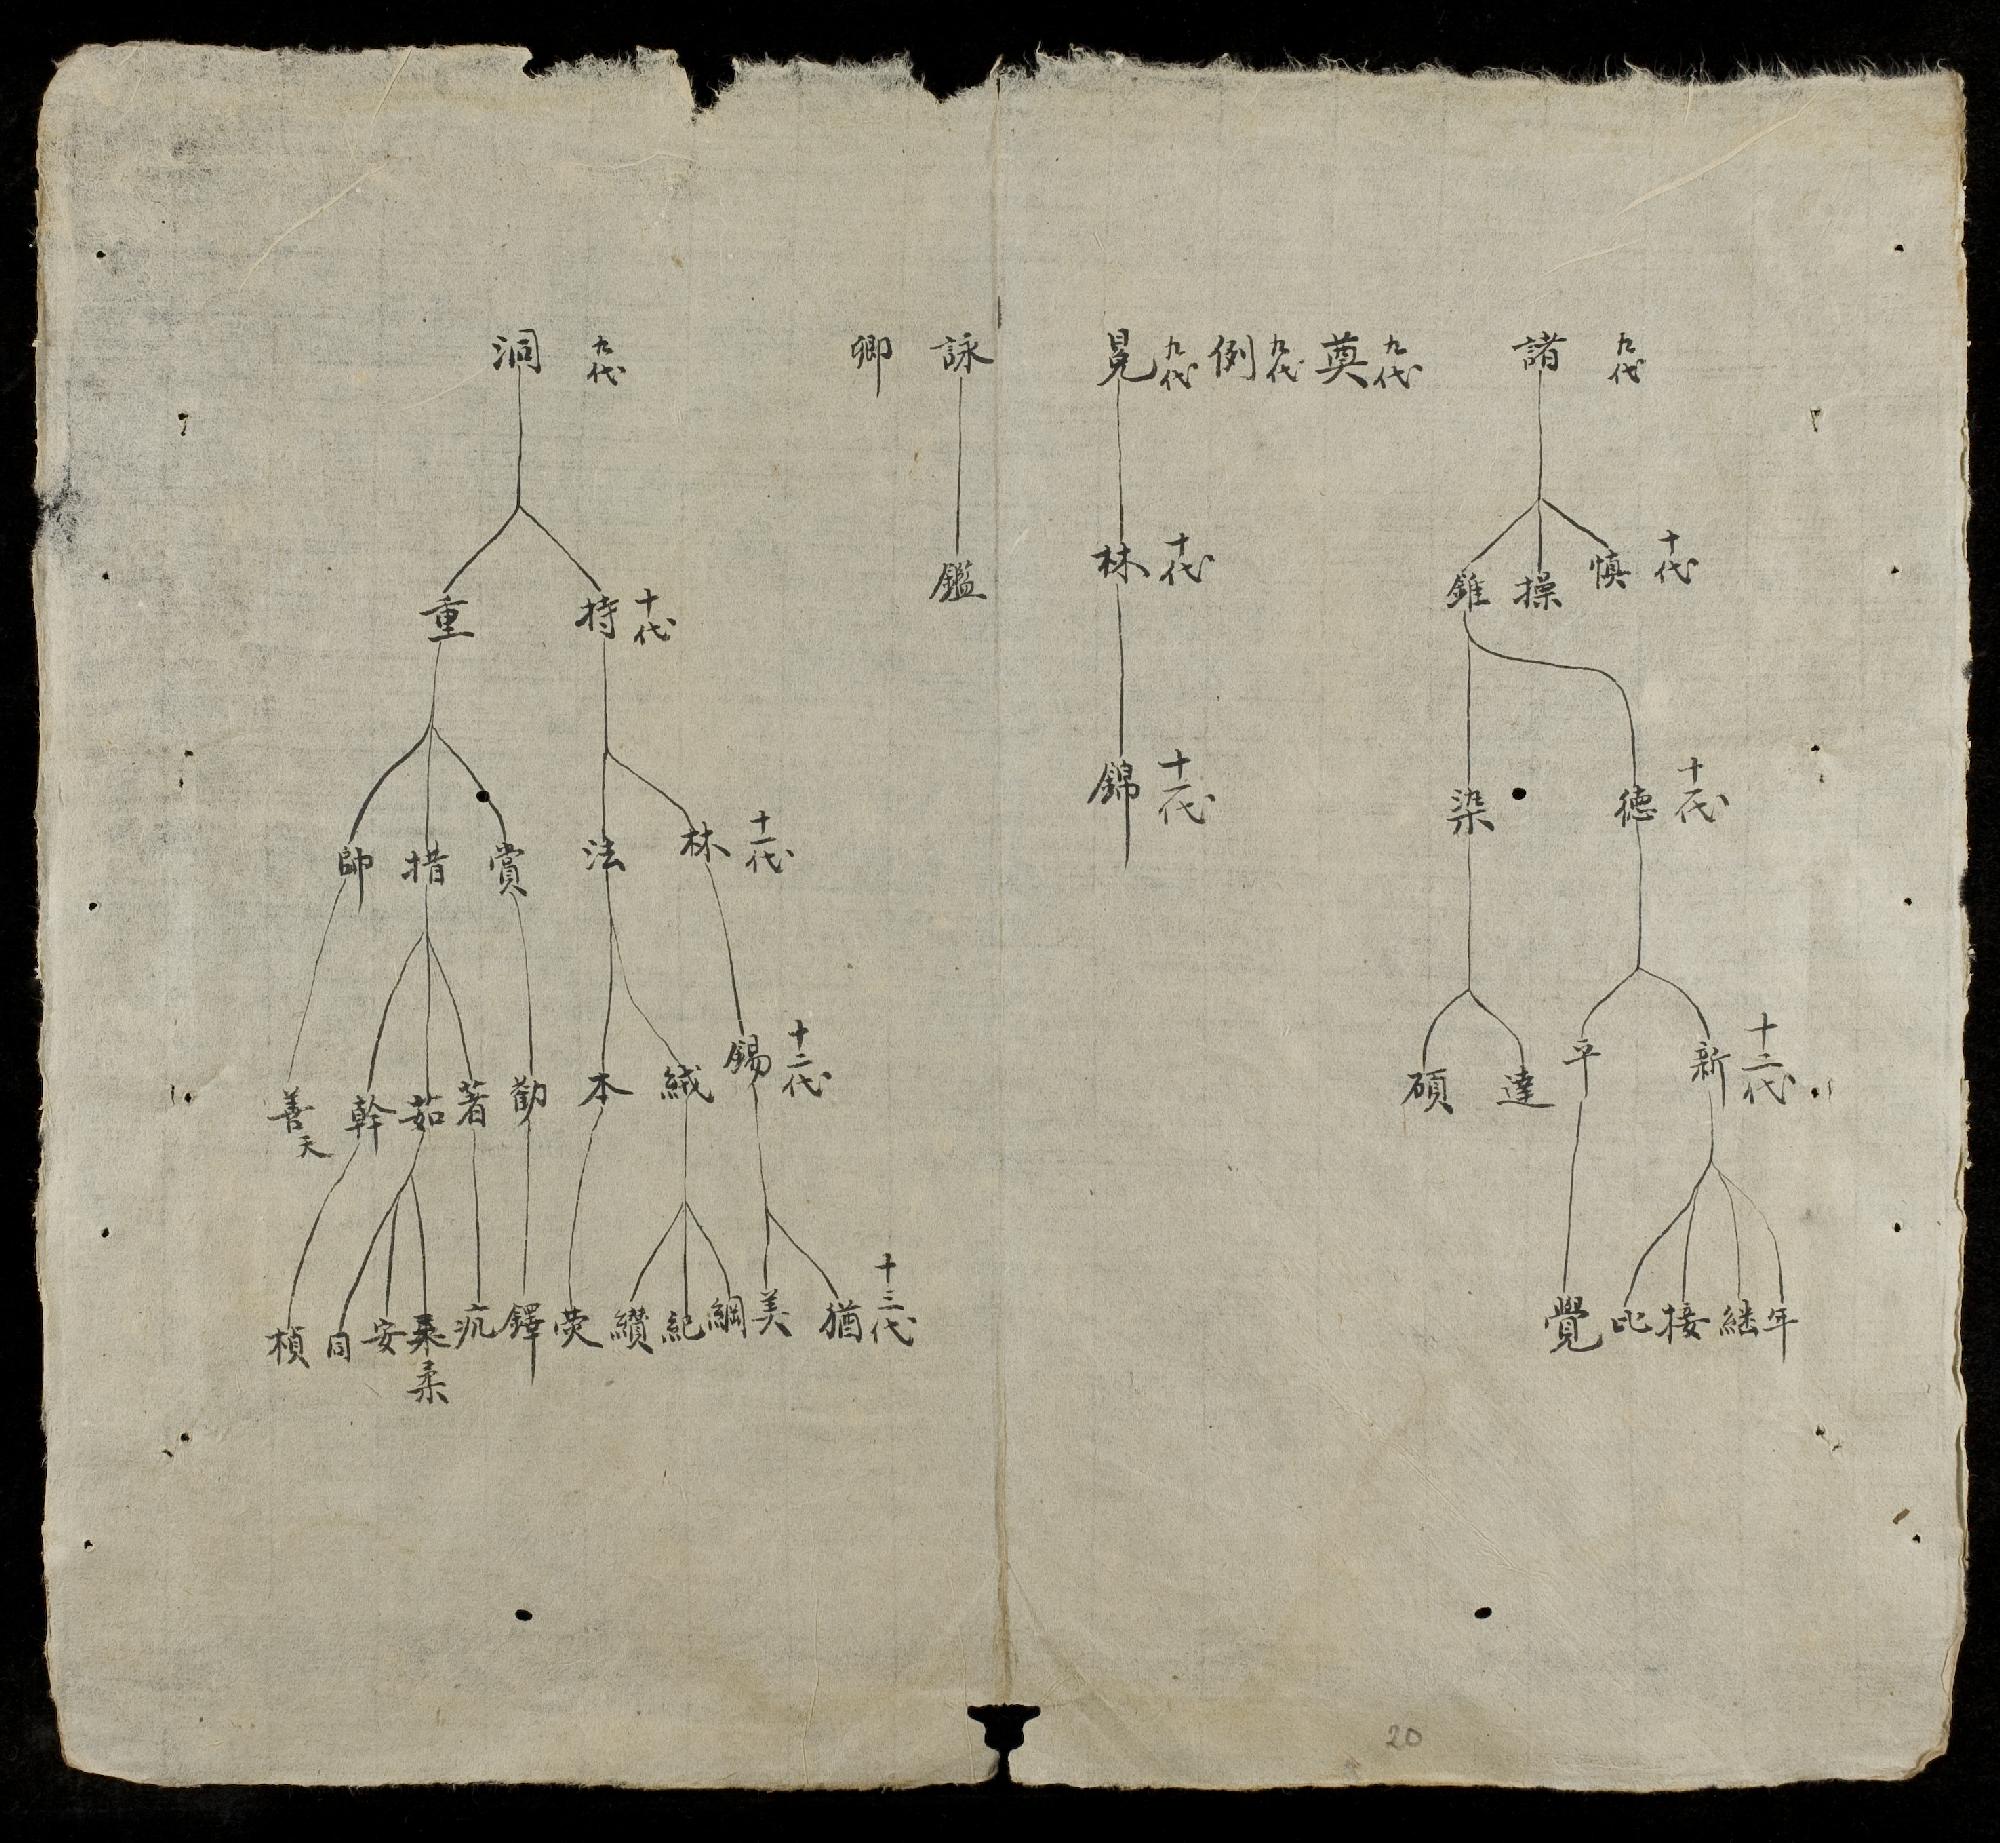 九代 諸
奠 九代
例 九代
晃 九代
詠
卿
九代 洞
十代 慎 操 錐
林 十代
鑑
十代 持 重
十一代 德 染
錦 十一代
十一代 林 法 賞 措 帥
十二代 新 平 達 碩
十二代 錫 絨 本 勸 著 茹 幹 善夭
年 繼 接 比 覺
十三代 猶 美 綱 紀 纘 荧 鐸 安 同 楨
柔
20